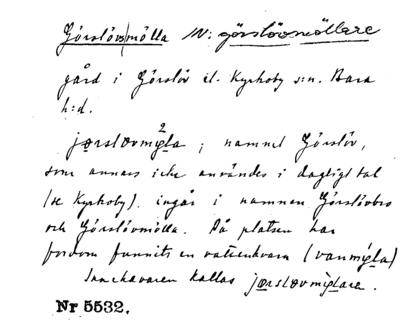 Görslövsmölla W: görslövsmöllare
gård i Görslöv el. Kyrkoby s:n. Bara
h:d.
jørsløvmỳ²la ; namnet Görslöv,
som annars icke användes i dagligt tal
(se Kyrkoby). ingår i namnen Görslövbro
och Görslövmölla. På platsen har
fordom funnits en vattenkvarn (vanmỳla)
Innehavaren kallas jørsløvmỳlare.
Nr 5532.